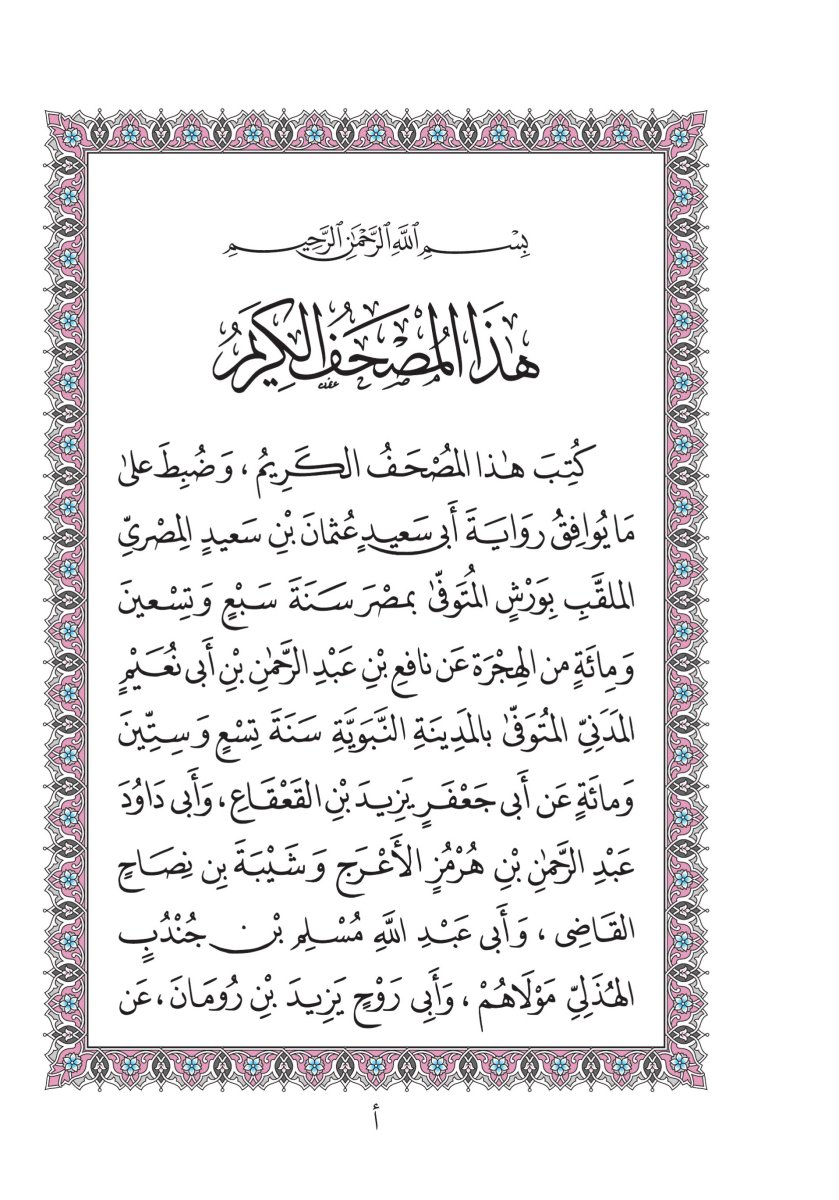 بِسْمِ ٱللَّهِ ٱلرَّحْمَٰنِ ٱلرَّحِيمِ
هَٰذَا الْمُصْحَفُ الْكَرِيمُ
كُتِبَ هٰذا المُصْحَفُ الكَرِيمُ، وَضُبِطَ علىٰ
مَا يُوافِقُ رِوَايَةَ أَبِى سَعِيدٍ عُثمَانَ بْنِ سَعِيدٍ المِصْرِىِّ
الملقَّبِ بِوَرْشٍ المُتَوَفّىٰ بمصْرَ سَنَةَ سَبْعٍ وَتِسْعينَ
وَمِائَةٍ من الهِجْرَة عَن نافِعِ بْنِ عَبْدِ الرَّحمٰنِ بْنِ أَبى نُعَيْمٍ
المَدَنِىِّ المُتوَفّىٰ بالمَدِينَةِ النَّبَوِيَّةِ سَنَةَ تِسْعٍ وَسِتِّينَ
وَمائَةٍ عَن أَبى جَعْفَرٍ يَزِيدَ بْنِ القَعْقَاعِ، وَأَبى دَاوُدَ
عَبْدِ الرَّحمٰنِ بْنِ هُرْمُزٍ الأَعْرَجِ وَشَيْبَةَ بِن نِصَاحٍ
القَاضِى، وَأَبى عَبْدِ اللَّهِ مُسْلِمِ بْنِ جُنْدُبٍ
الهُذَلِىِّ مَوْلَاهُمْ، وَأَبِى رَوْحٍ يَزِيدَ بْنِ رُومَانَ، عَن
أ